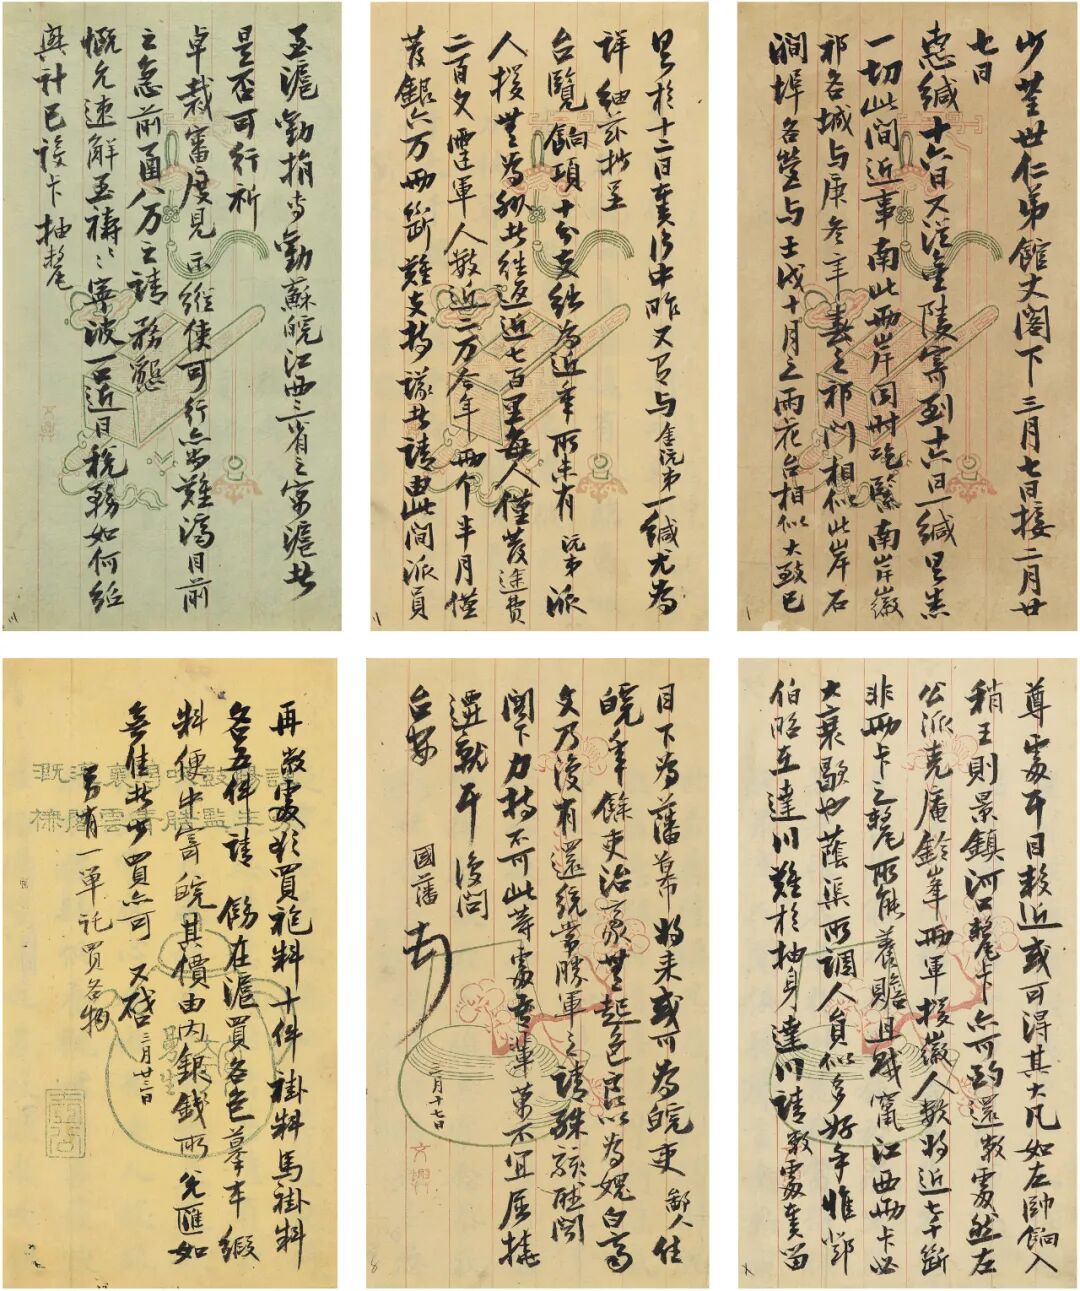 少荃世仁弟館丈閣下三月七日接二月廿
七日
惠緘十六日又從金陵寄到十六日一緘具悉
一切此間近事南北兩岸同時吃緊南岸徽
祁各城與庚冬辛春之祁門相似北岸石
澗埠各營與壬戌十月之雨花台相似大致已
具於十二日奏片中昨又有與舍沅弟一緘尤為
詳細茲抄呈
台覽餉項十分支絀為近年所未有沅弟派
人援無為州者往返近七百里每人僅發途費
二百文霆軍人數近二万今年兩个半月僅
發銀六万兩斷難支持議者請由此間派員
至滬勸捐專勸蘇皖江西三省之寓滬者
是否可行祈
卓裁審度見示縱使可行亦尚難濟目前
之急前函八万之請務懇
慨允速解至禱〻寧波一口近日稅務如何紹
興計已設卡抽釐
尊處耳目較近或可得其大凡如左帥餉入
稍王則景鎮河口釐卡亦可酌還敝處然左
公派克庵鈐峯兩軍援徽人數將近七千斷
非兩卡之釐所能養贍且賊竄江西兩卡必
大衰歇也蔭渠所調人員似多好手惟鄧
伯昭在達川難於抽身達川請敝處奏留
目下為藩幕將來或可為皖吏鄙人住
皖年餘吏治毫無起色良以為媿白齊
文乃復有還統常勝軍之請殊駭聽聞
閣下力持不可此等處吾輩萬不宜屈撓
遷就耳復問
台安
國藩頓
三月十七日
文興
再敝處欲買袍料十件褂料馬褂料
各五件請飭在滬買各色摹本緞
料便中寄皖其價由內銀錢所兌匯如
無佳者少買亦可又啓三月廿三日
另有一單託買各物